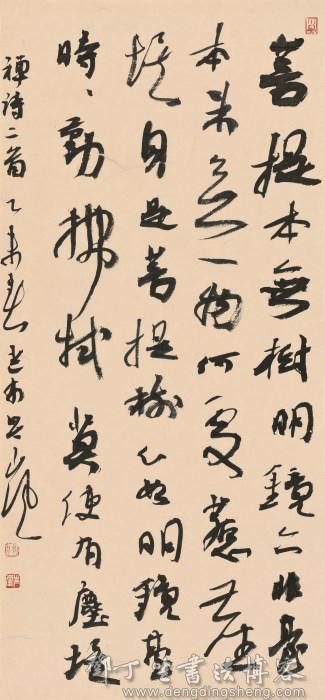 菩提本無樹明鏡亦非臺
本来無一物何處惹塵
埃身是菩提樹心如明鏡臺
時〻勤拂拭莫使有塵埃
禅詩二首乙未春
邓丁生书法博客
www.dengdingsheng.com